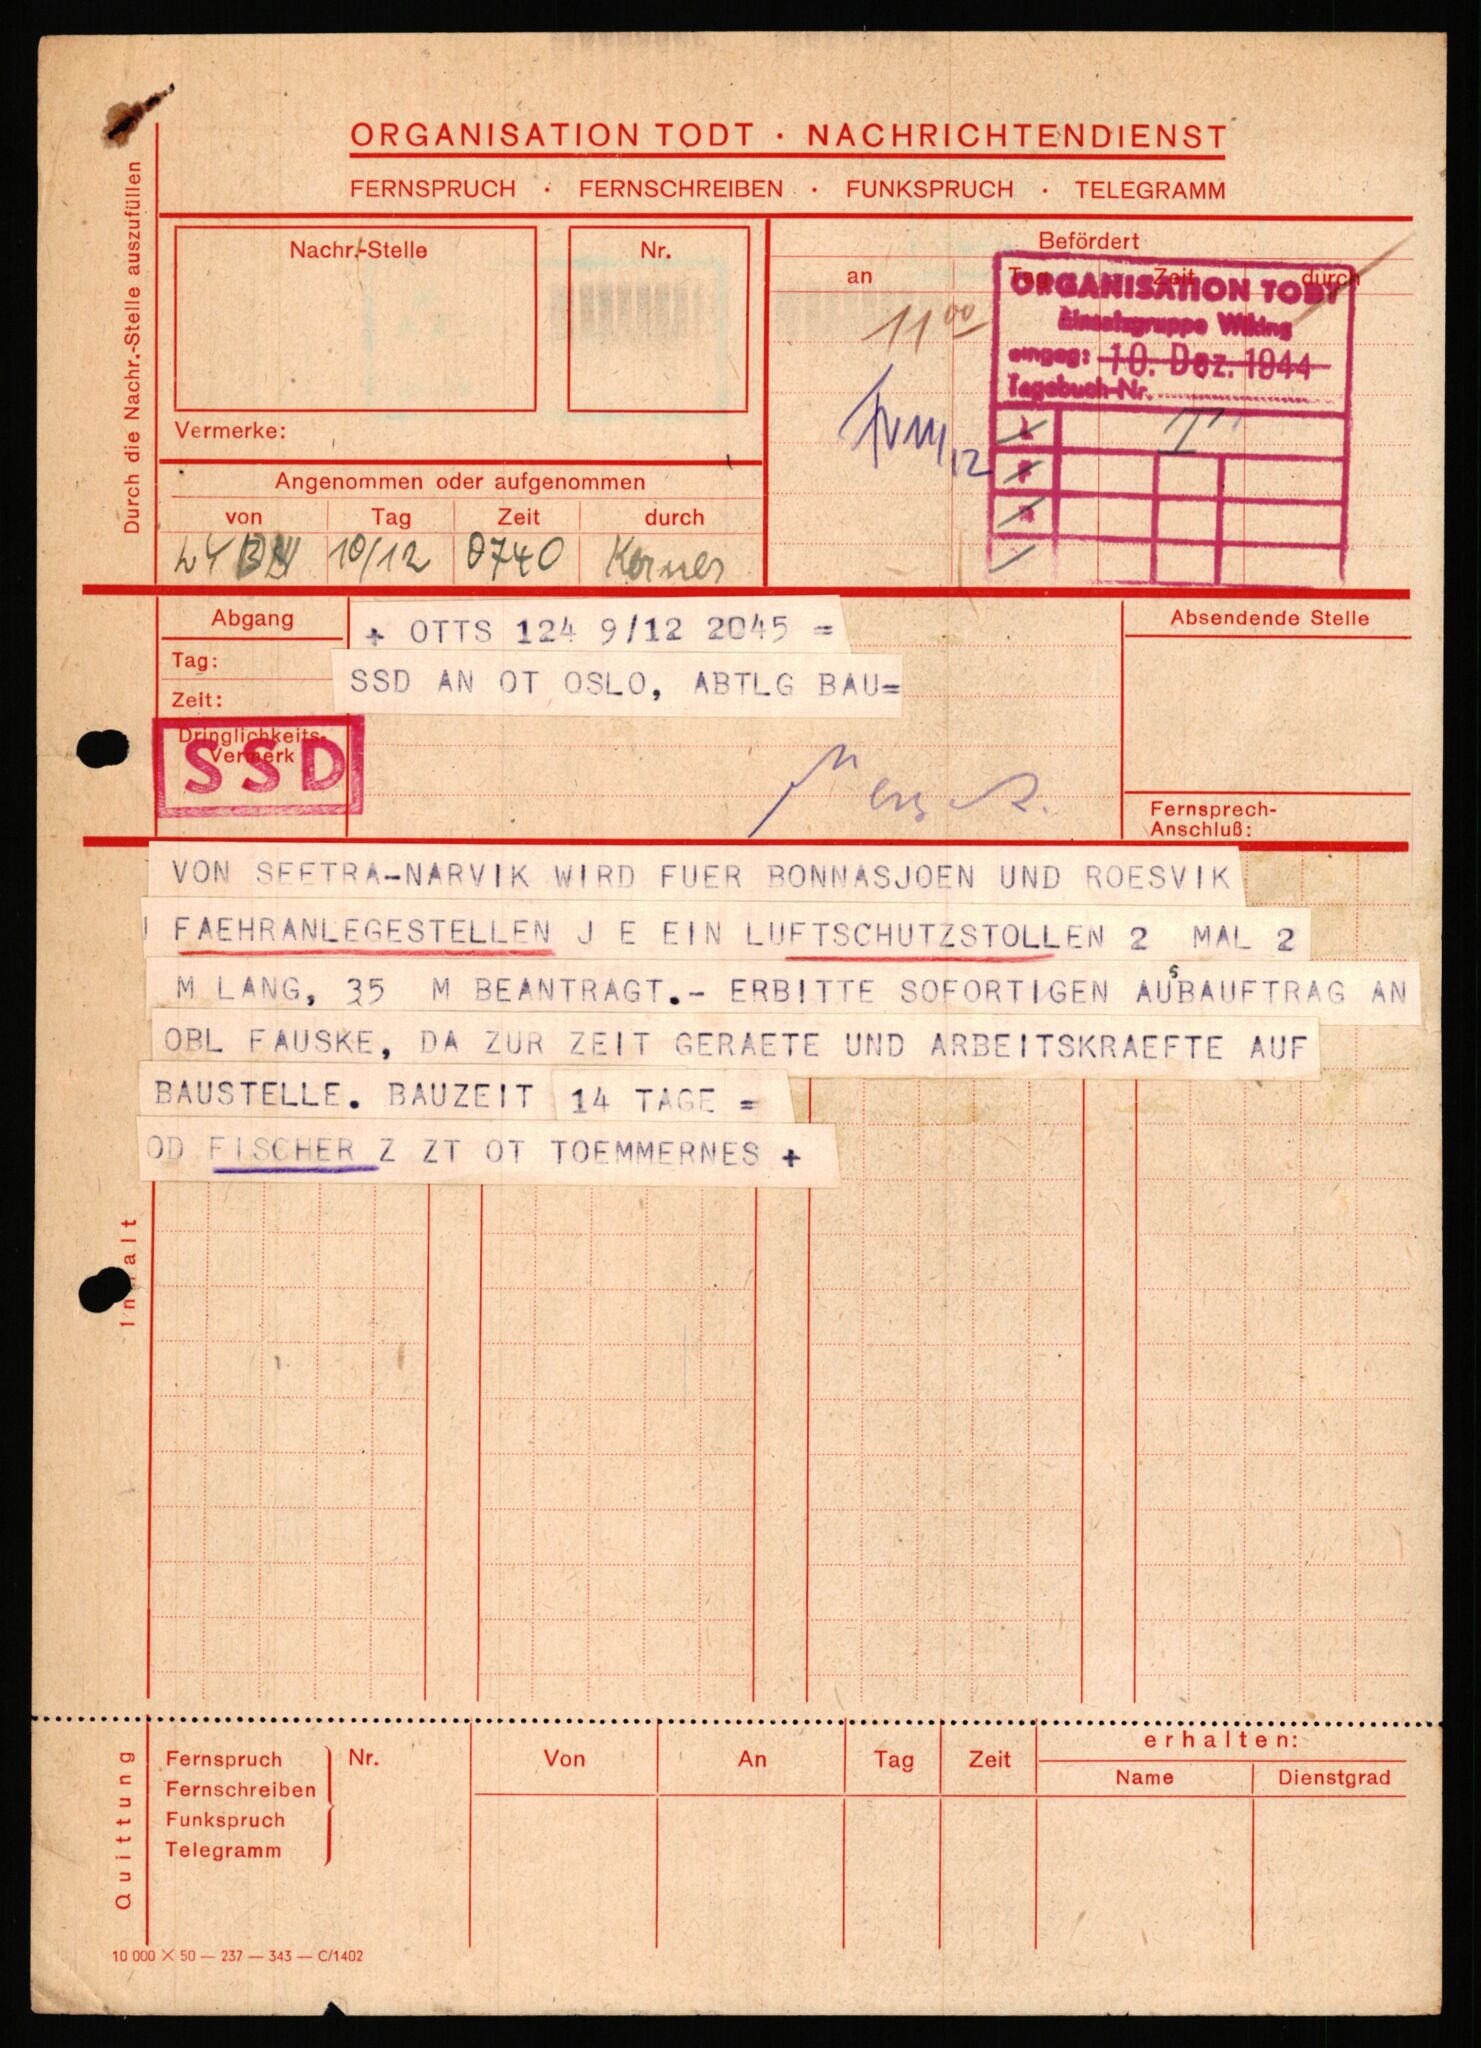 ORGANISATION TODT · NACHRICHTENDIENST
FERNSPRUCH · FERNSCHREIBEN · FUNKSPRUCH · TELEGRAMM
Durch die Nachr.-Stelle auszufüllen
Nachr.-Stelle
Nr.
Vermerke:
Befördert
an
Tag
Zeit
durch
11 00
ORGANISATION TODT
Einsatzgruppe Wiking
eingeg: 10. Dez. 1944
Tagebuch-Nr.
I
12
Angenommen oder aufgenommen
von Tag Zeit durch
10/12 0740
Abgang
Tag:
Zeit:
Dringlichkeits-
Vermerk
SSD
+ OTTS 124 9/12 2045 =
SSD AN OT OSLO, ABTLG BAU=
Absendende Stelle
Fernsprech-
Anschluß:
VON SEETRA-NARVIK WIRD FUER BONNASJOEN UND ROESVIK
FAEHRANLEGESTELLEN J E EIN LUFTSCHUTZSTOLLEN 2 MAL 2
M LANG, 35 M BEANTRAGT.- ERBITTE SOFORTIGEN AUSBAUFTRAG AN
OBL FAUSKE, DA ZUR ZEIT GERAETE UND ARBEITSKRAEFTE AUF
BAUSTELLE. BAUZEIT 14 TAGE =
OD FISCHER Z ZT OT TOEMMERNES +
Inhalt
Quittung
Fernspruch
Fernschreiben
Funkspruch
Telegramm
Nr.
Von
An
Tag
Zeit
erhalten:
Name
Dienstgrad
10 000 X 50 — 237 — 343 — C/1402